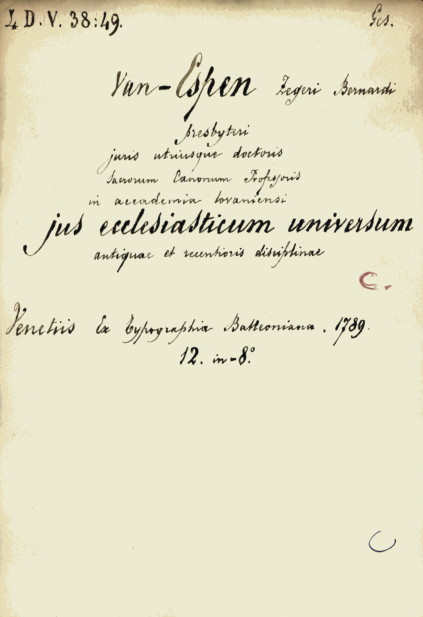 4 D. V. 38:49. Ges.
Van-Espen Zegeri Bernardi
presbyteri
juris utriusque doctoris
sacrorum Canonum Professoris
in accademia lovaniensi
jus ecclesiasticum universum
antiquae et recentioris disciplinae
C.
Venetiis Ex Typographia Balleoniana. 1789.
12. in-8°